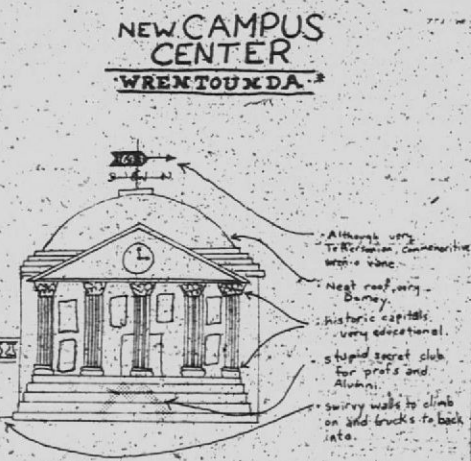 NEW CAMPUS
CENTER
WRENTOUNDA
Although very
Jeffersonian, commemorative
vane.
Neat roof, very
Historic capitals
very educational.
stupid secret club
for profs and
Alumni.
swirvy walls to climb
on and trucks to back
into.